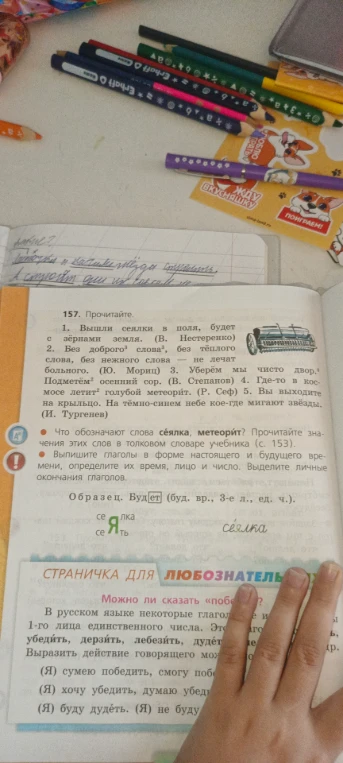 ErhaFt
ErhaFt
ЖДУ
ВКУСНЯШКУ
ПОИГРАЕМ!
строить.
157. Прочитайте.
1. Вышли сеялки в поля, будет
с зёрнами земля. (В. Нестеренко)
2. Без доброго³ слова³, без тёплого
слова, без нежного слова — не лечат
больного. (Ю. Мориц) 3. Уберём мы чисто двор.⁴
Подметём² осенний сор. (В. Степанов) 4. Где-то в кос-
мосе летит² голубой метеорит. (Р. Сеф) 5. Вы выходите
на крыльцо. На тёмно-синем небе кое-где мигают звёзды.
(И. Тургенев)
● Что обозначают слова сеялка, метеорит? Прочитайте зна-
чения этих слов в толковом словаре учебника (с. 153).
● Выпишите глаголы в форме настоящего и будущего вре-
мени, определите их время, лицо и число. Выделите личные
окончания глаголов.
Образец. Будет (буд. вр., 3-е л., ед. ч.).
се Я лка
се ть
сеялка
СТРАНИЧКА ДЛЯ ЛЮБОЗНАТЕЛЬ
Можно ли сказать «побе
В русском языке некоторые глаго
1-го лица единственного числа.
убедить, дерзить, лебезить, дудет
Выразить действие говорящего мож
(Я) сумею победить, смогу поб
(Я) хочу убедить, думаю убед
(Я) буду дудеть. (Я) не буду